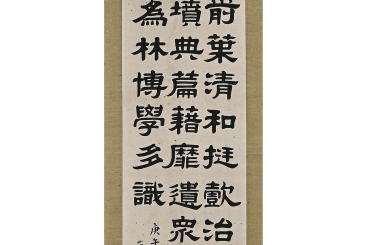 葉清和挺懿治
墳典篇藉靡遺衆
為林博學多識
庚午